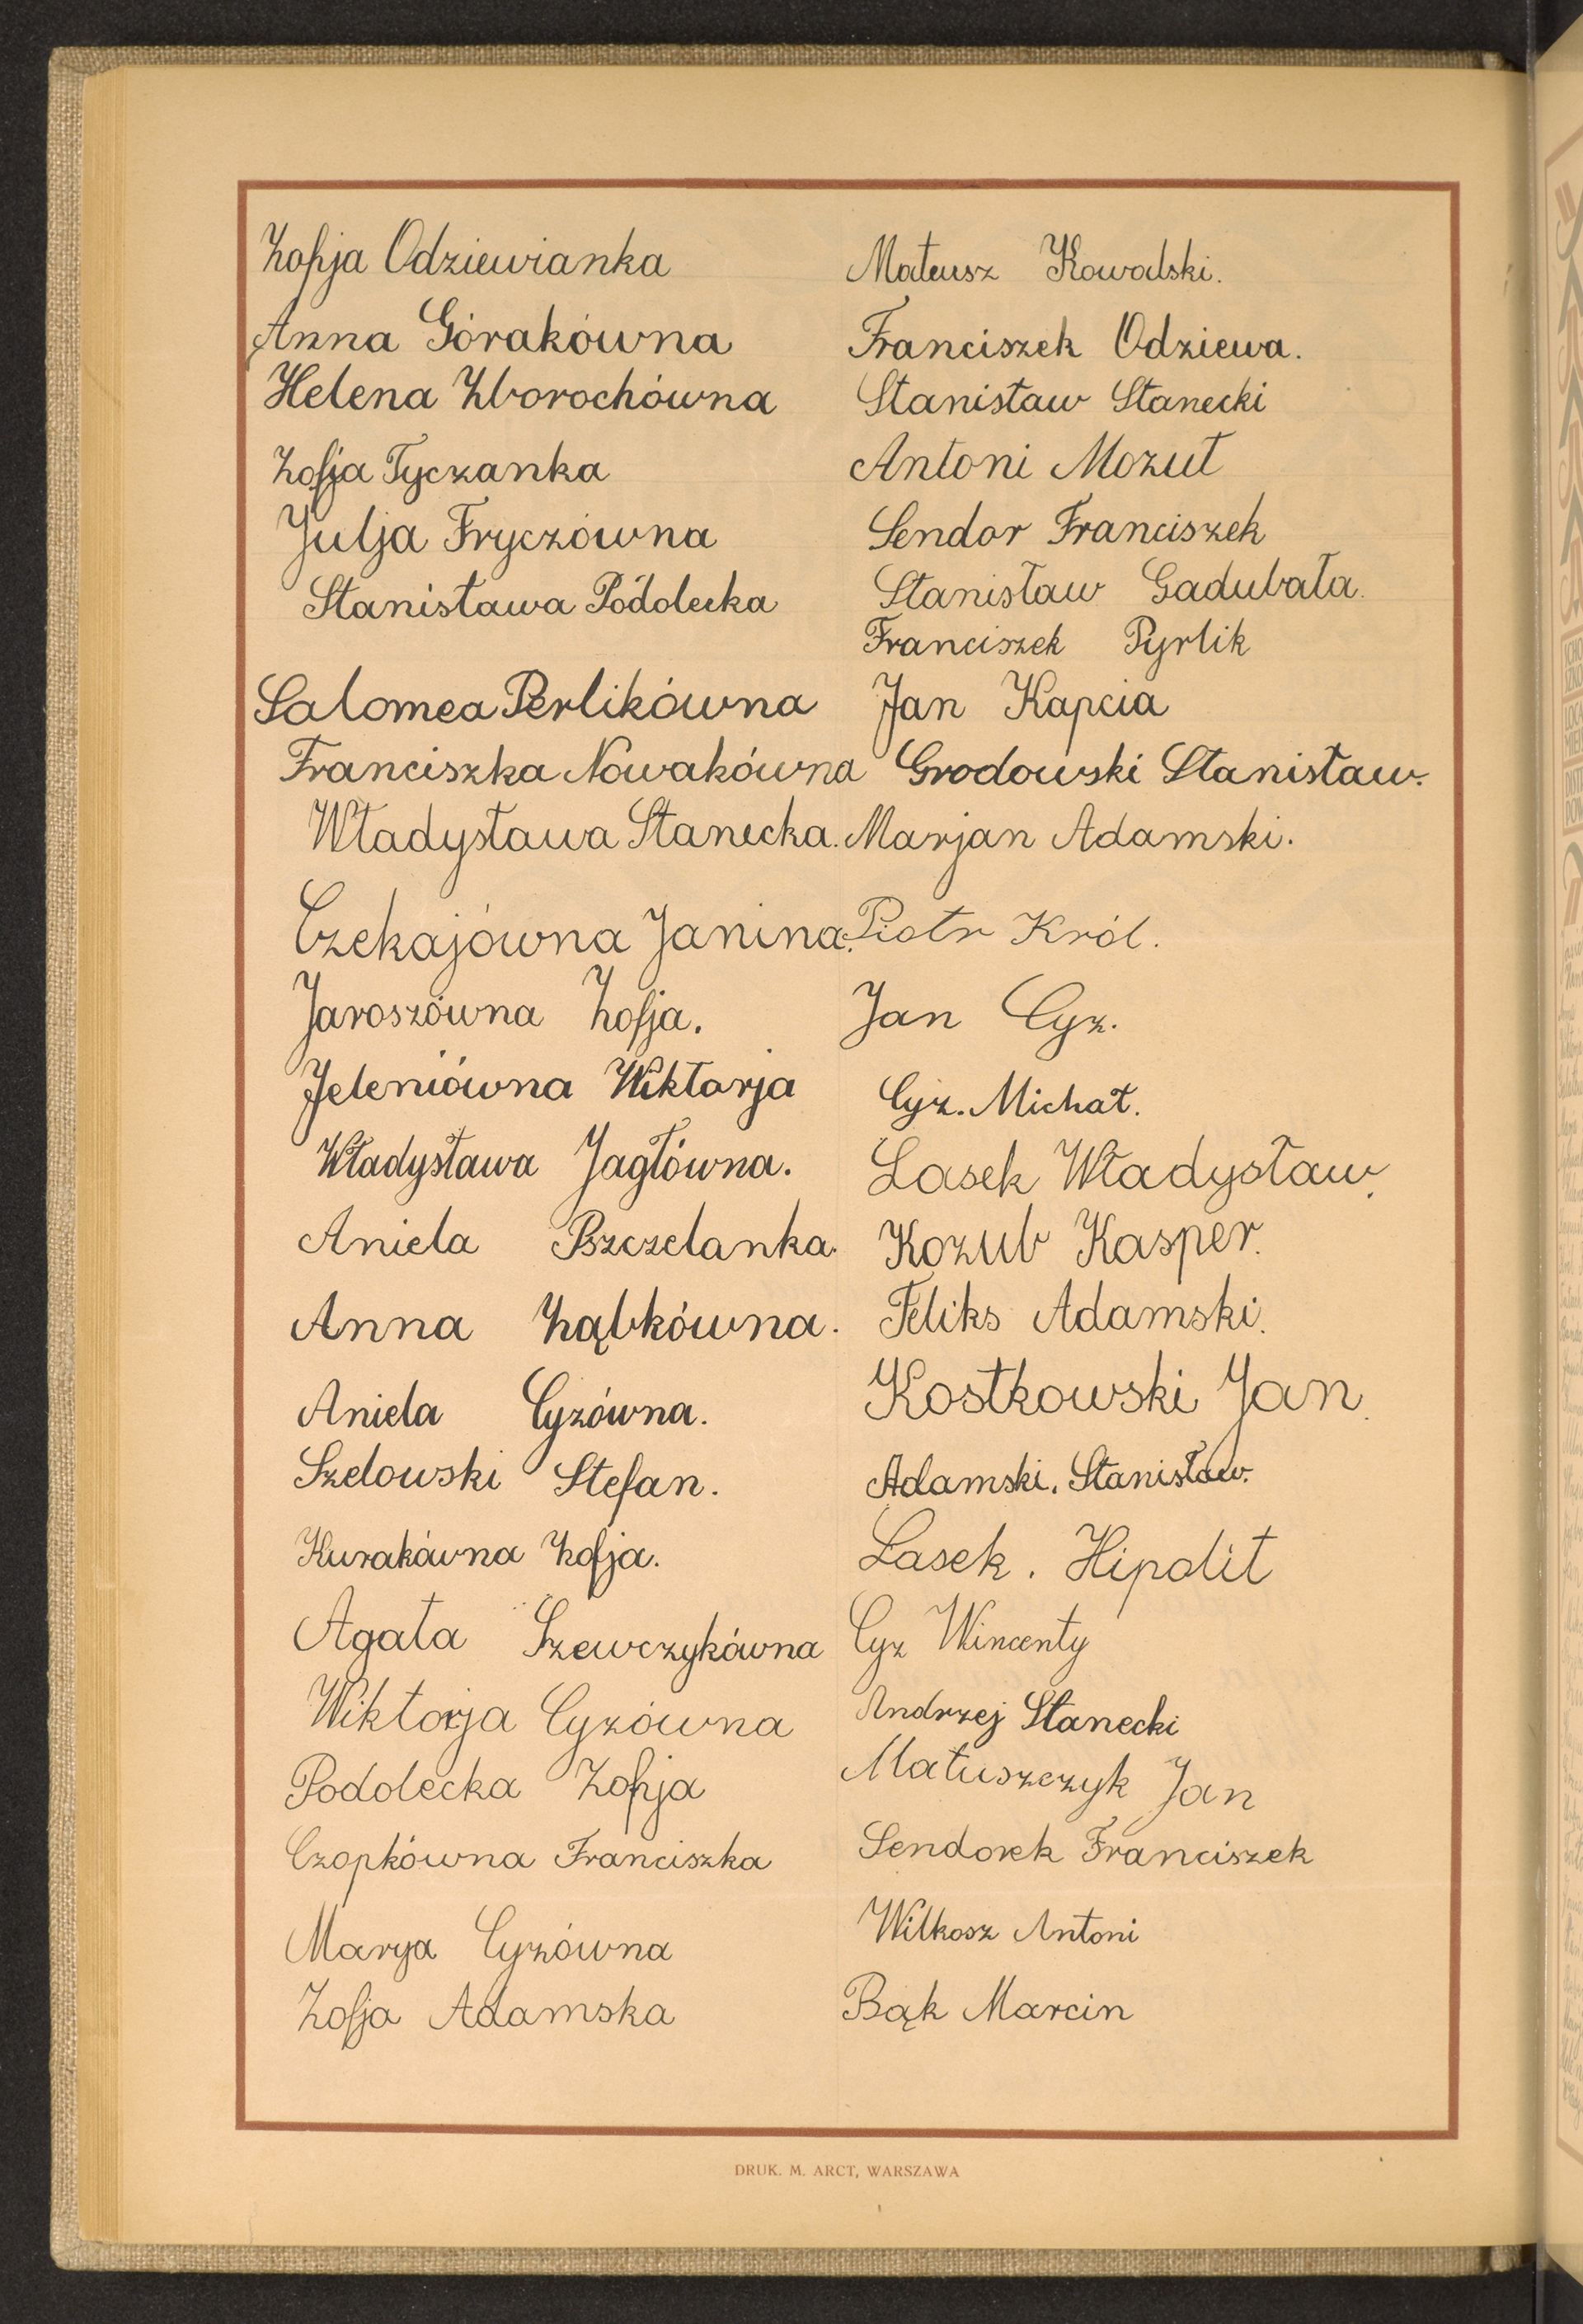 Zofja Odziewianka
Anna Górakówna
Helena Zborochówna
Zofja Tyczanka
Julja Fryczówna
Stanisława Podolecka
Salomea Perlikówna
Franciszka Nowakówna
Władysława Stanecka.
Czekajówna Janina.
Jaroszówna Zofja.
Jeleniówna Wiktorja
Władysława Jagłówna.
Aniela Pszczelanka.
Anna Ząbkówna.
Aniela Cyzówna.
Szelowski Stefan.
Kurakówna Zofja.
Agata Szewczykówna
Wiktorja Cyzówna
Podolecka Zofja
Czopkówna Franciszka
Marya Cyzówna
Zofja Adamska
Mateusz Kowalski.
Franciszek Odziewa.
Stanisław Stanecki
Antoni Mozut
Sendor Franciszek
Stanisław Gadubała.
Franciszek Pyrlik
Jan Kapcia
Grodowski Stanisław.
Marjan Adamski.
Piotr Król.
Jan Cyz.
Cyz. Michał.
Lasek Władysław.
Kozub Kasper.
Feliks Adamski.
Kostkowski Jan.
Adamski. Stanisław.
Lasek. Hipolit
Cyz Wincenty
Andrzej Stanecki
Matuszczyk Jan
Sendorek Franciszek
Wilkosz Antoni
Bąk Marcin
DRUK. M. ARCT, WARSZAWA